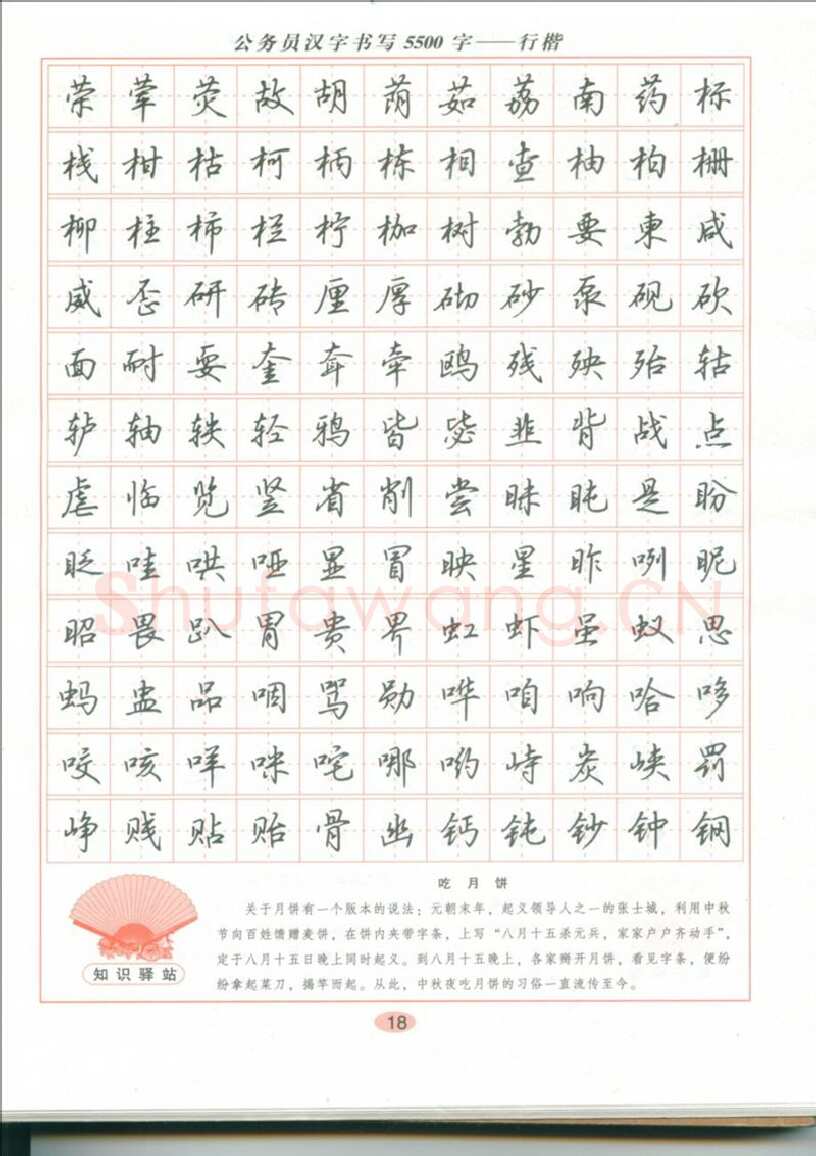 公务员汉字书写5500字——行楷
荣 荤 荧 故 胡 荫 茹 荔 南 药 标
栈 柑 枯 柯 柄 栋 相 查 柚 柏 栅
柳 柱 柿 栏 柠 枷 树 勃 要 柬 咸
威 歪 研 砖 厘 厚 砌 砂 泵 砚 砍
面 耐 耍 奎 耷 牵 鸥 残 殃 殆 轱
轳 轴 轶 轻 鸦 皆 毖 韭 背 战 点
虐 临 览 竖 省 削 尝 昧 盹 是 盼
眨 哇 哄 哑 显 冒 映 星 昨 咧 昵
昭 畏 趴 胃 贵 界 虹 虾 虽 蚁 思
蚂 盅 品 咽 骂 勋 哗 咱 响 哈 哆
咬 咳 咩 咪 咤 哪 哟 峙 炭 峡 罚
峥 贱 贴 贻 骨 幽 钙 钝 钞 钟 钢
吃月饼
关于月饼有一个版本的说法：元朝末年，起义领导人之一的张士城，利用中秋
节向百姓馈赠麦饼，在饼内夹带字条，上写“八月十五杀元兵，家家户户齐动手”，
定于八月十五日晚上同时起义。到八月十五晚上，各家掰开月饼，看见字条，便纷
纷拿起菜刀，揭竿而起。从此，中秋夜吃月饼的习俗一直流传至今。
知识驿站
18
Shufawang.CN